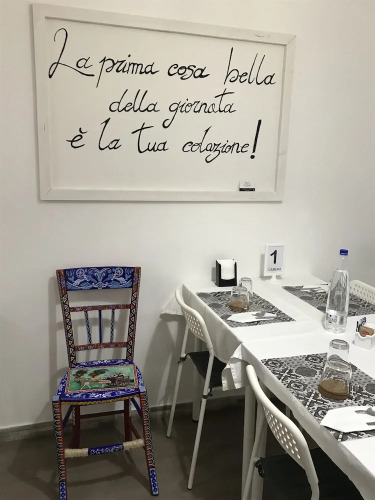 La prima cosa bella
della giornata
è la tua colazione!
1